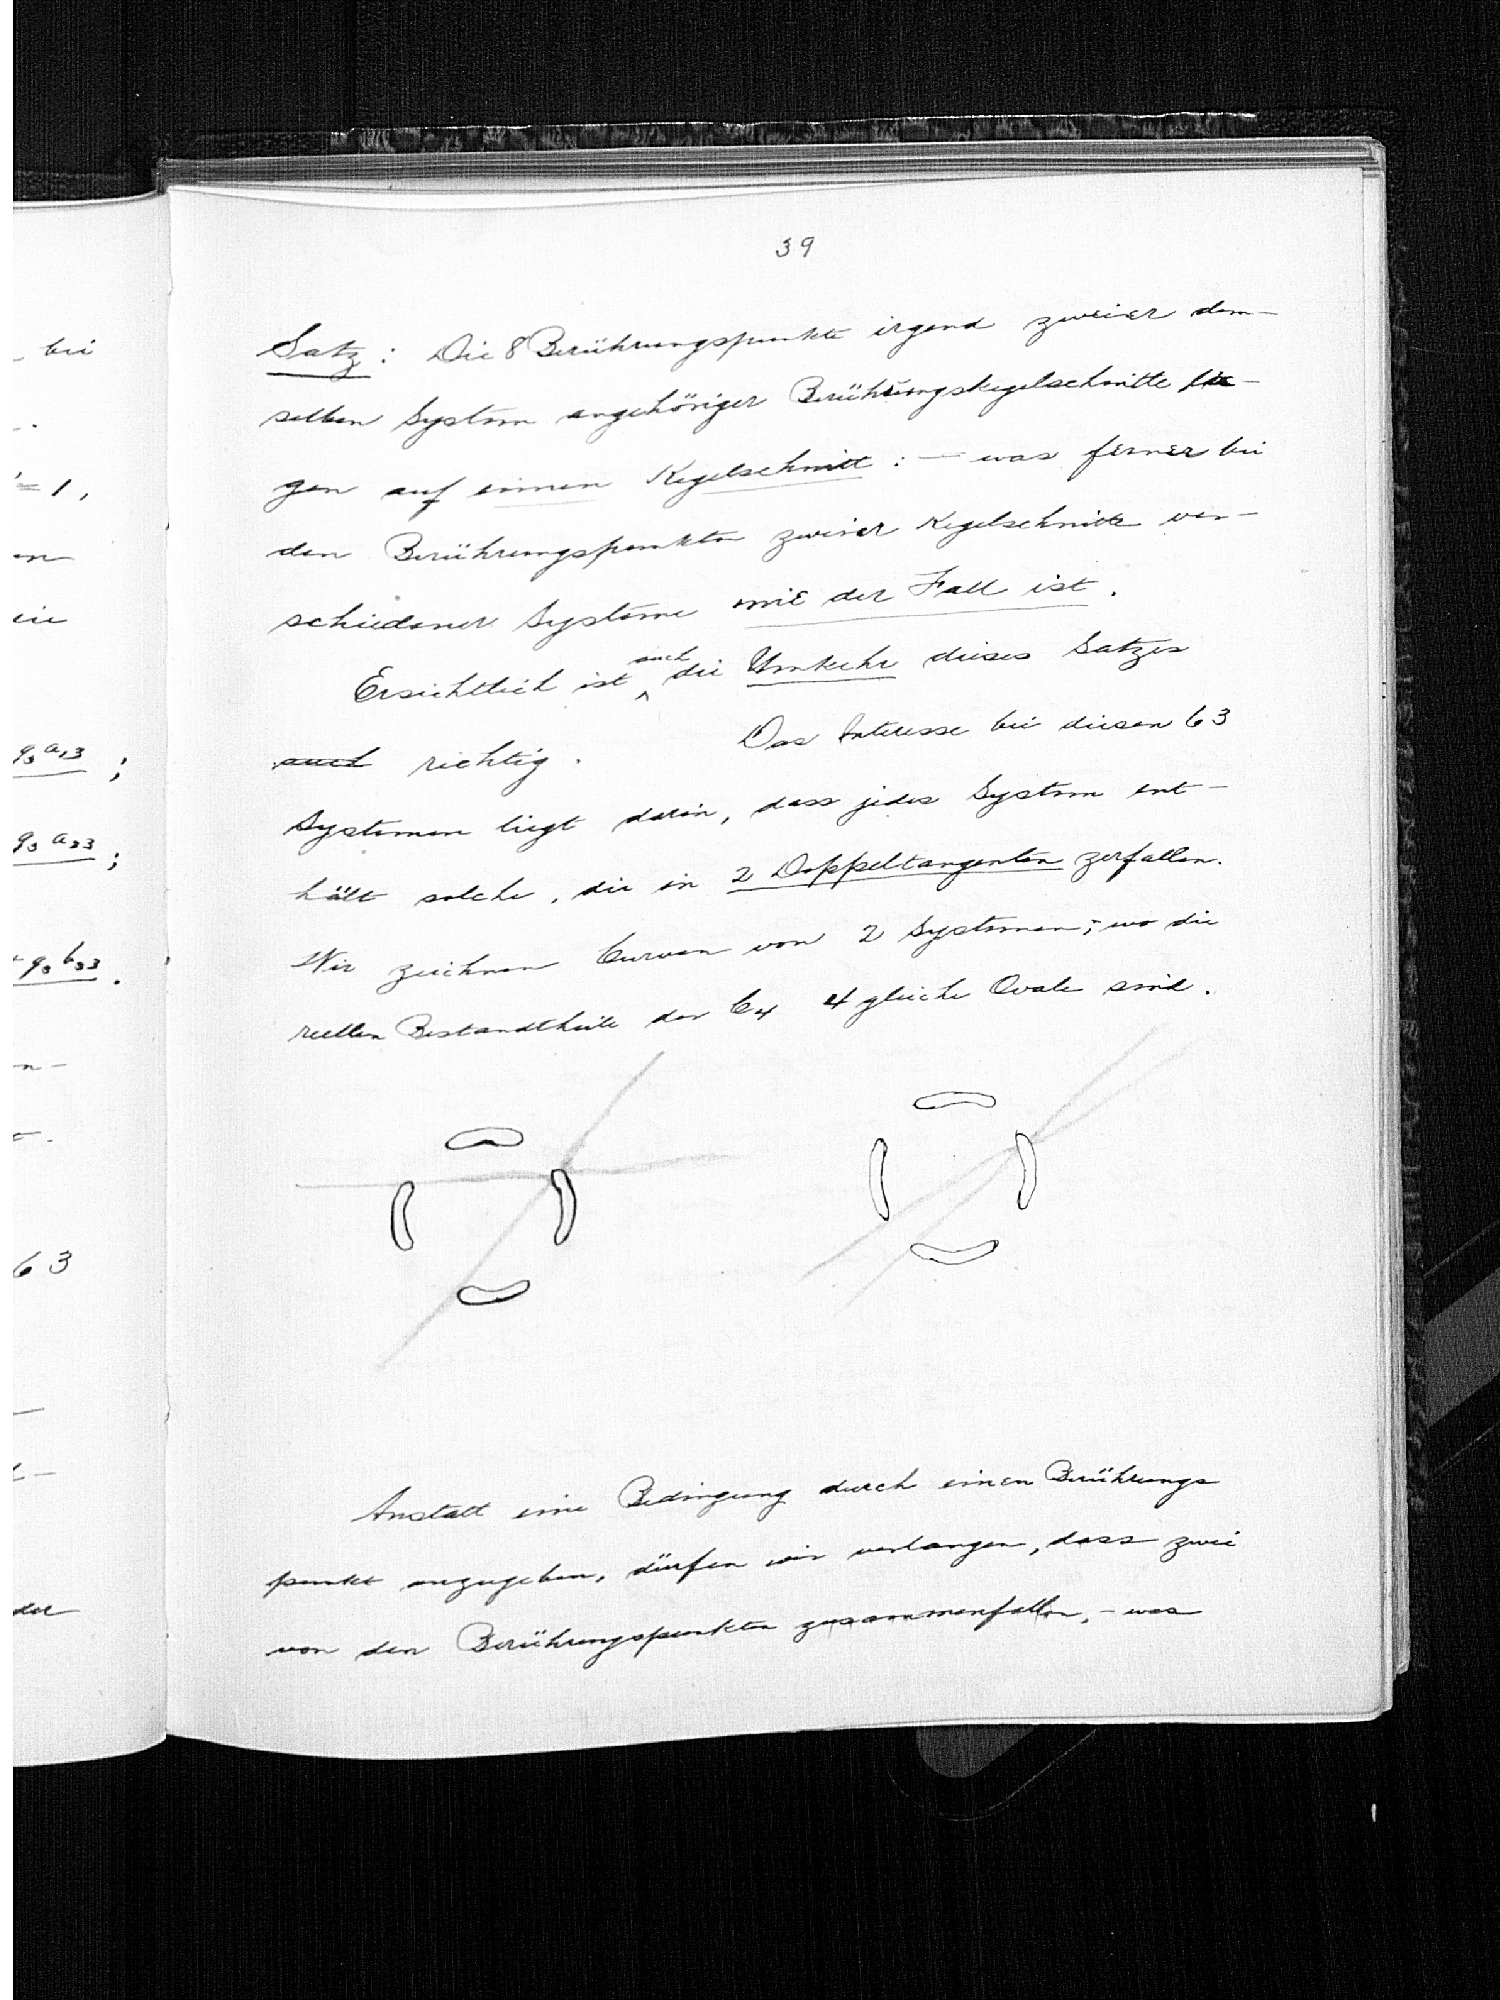 39
Satz: Die 8 Berührungspunkte irgend zweier dem-
selben System angehöriger Berührungskegelschnitte lie-
gen auf einem Kegelschnitt: — was ferner bei
den Berührungspunkten zweier Kegelschnitte ver-
schiedener Systeme nie der Fall ist.
Ersichtlich ist auch die Umkehr dieses Satzes
auch richtig. Das Interesse bei diesen 63
Systemen liegt darin, dass jedes System ent-
hält solche, die in 2 Doppeltangenten zerfallen.
Wir zeichnen Curven von 2 Systemen; wo die
reellen Bestandtheile der C4 4 gleiche Ovale sind.
Anstatt eine Bedingung durch einen Berührungs
punkt anzugeben, dürfen wir verlangen, dass zwei
von den Berührungspunkten zusammenfallen, - was
bei
= 1,
on
q3 a13 ;
q3 a23 ;
+ q3 b33 .
63